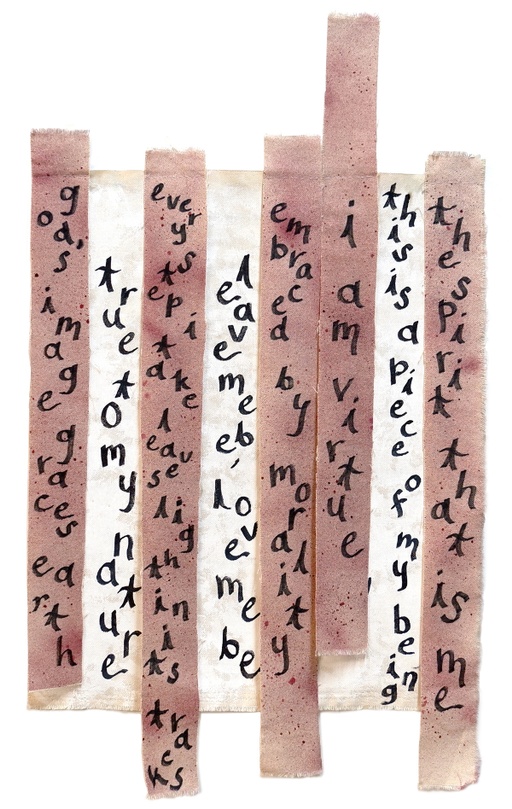 god's image graces earth
true to my nature
every step i take leaves light in its tracks
leave me be, love me be
embraced by morality
i am virtue
this is a piece of my being
the spirit that is me